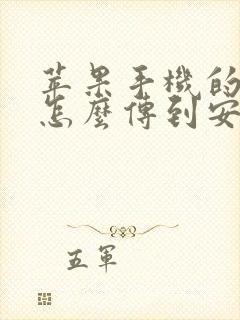 苹果手機的
怎麼傳到安
五軍